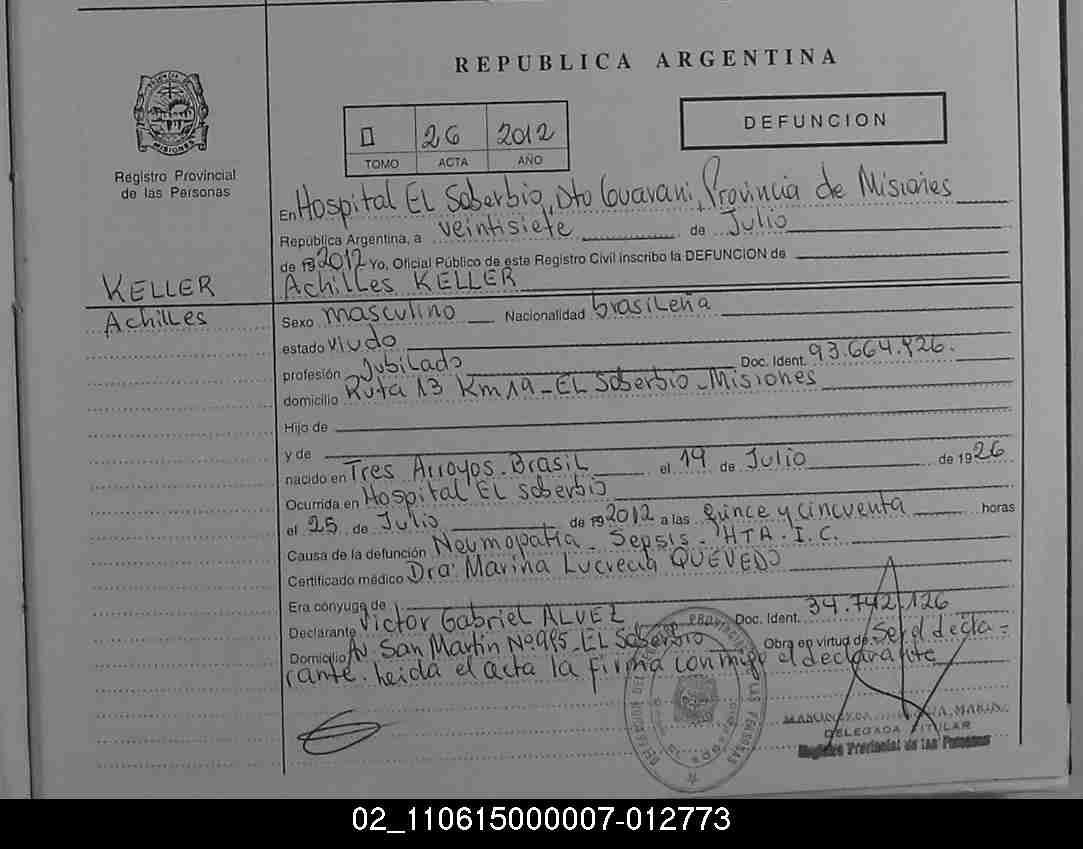 REPUBLICA ARGENTINA
Registro Provincial
de las Personas
26 2012
TOMO ACTA AÑO
DEFUNCION
En Hospital EL Soberbio, Dto Guarani, Provincia de Misiones
República Argentina, a veintisiete de Julio
de 19 2012 Yo, Oficial Público de este Registro Civil inscribo la DEFUNCION de
KELLER
Achilles KELLER
Achilles
Sexo masculino Nacionalidad brasileña
estado Viudo
profesión Jubilado Doc. Ident. 93.664.926.
domicilio Ruta 13 Km 19 - EL Soberbio - Misiones
Hijo de
y de
nacido en Tres Arroyos - Brasil el 19 de Julio de 1926
Ocurrida en Hospital EL Soberbio
el 25 de Julio de 19 2012 a las quince y cincuenta horas
Causa de la defunción Neumopatia - Sepsis - HTA. I.C.
Certificado médico Dra. Marina Lucrecia QUEVEDO
Era cónyuge de
Declarante Victor Gabriel ALVEZ Doc. Ident. 34.742.126
Domicilio Av San Martin Nº 995 - EL Soberbio Obra en virtud de Ser el decla=
rante. Leida el acta la firma conmigo el declarante
DELEGADA TITULAR
Registro Provincial de las Personas
02_110615000007-012773